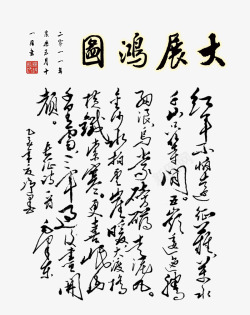 大展鴻圖
二〇一一年
红军不怕远征難万水
千山只等闲。五岭逶迤腾
细浪乌蒙磅礴走泥丸。
金沙水拍云崖暖大渡桥
横鐵索寒。更喜岷山
千里雪三军过后尽開
颜。
长征诗一首
毛泽东